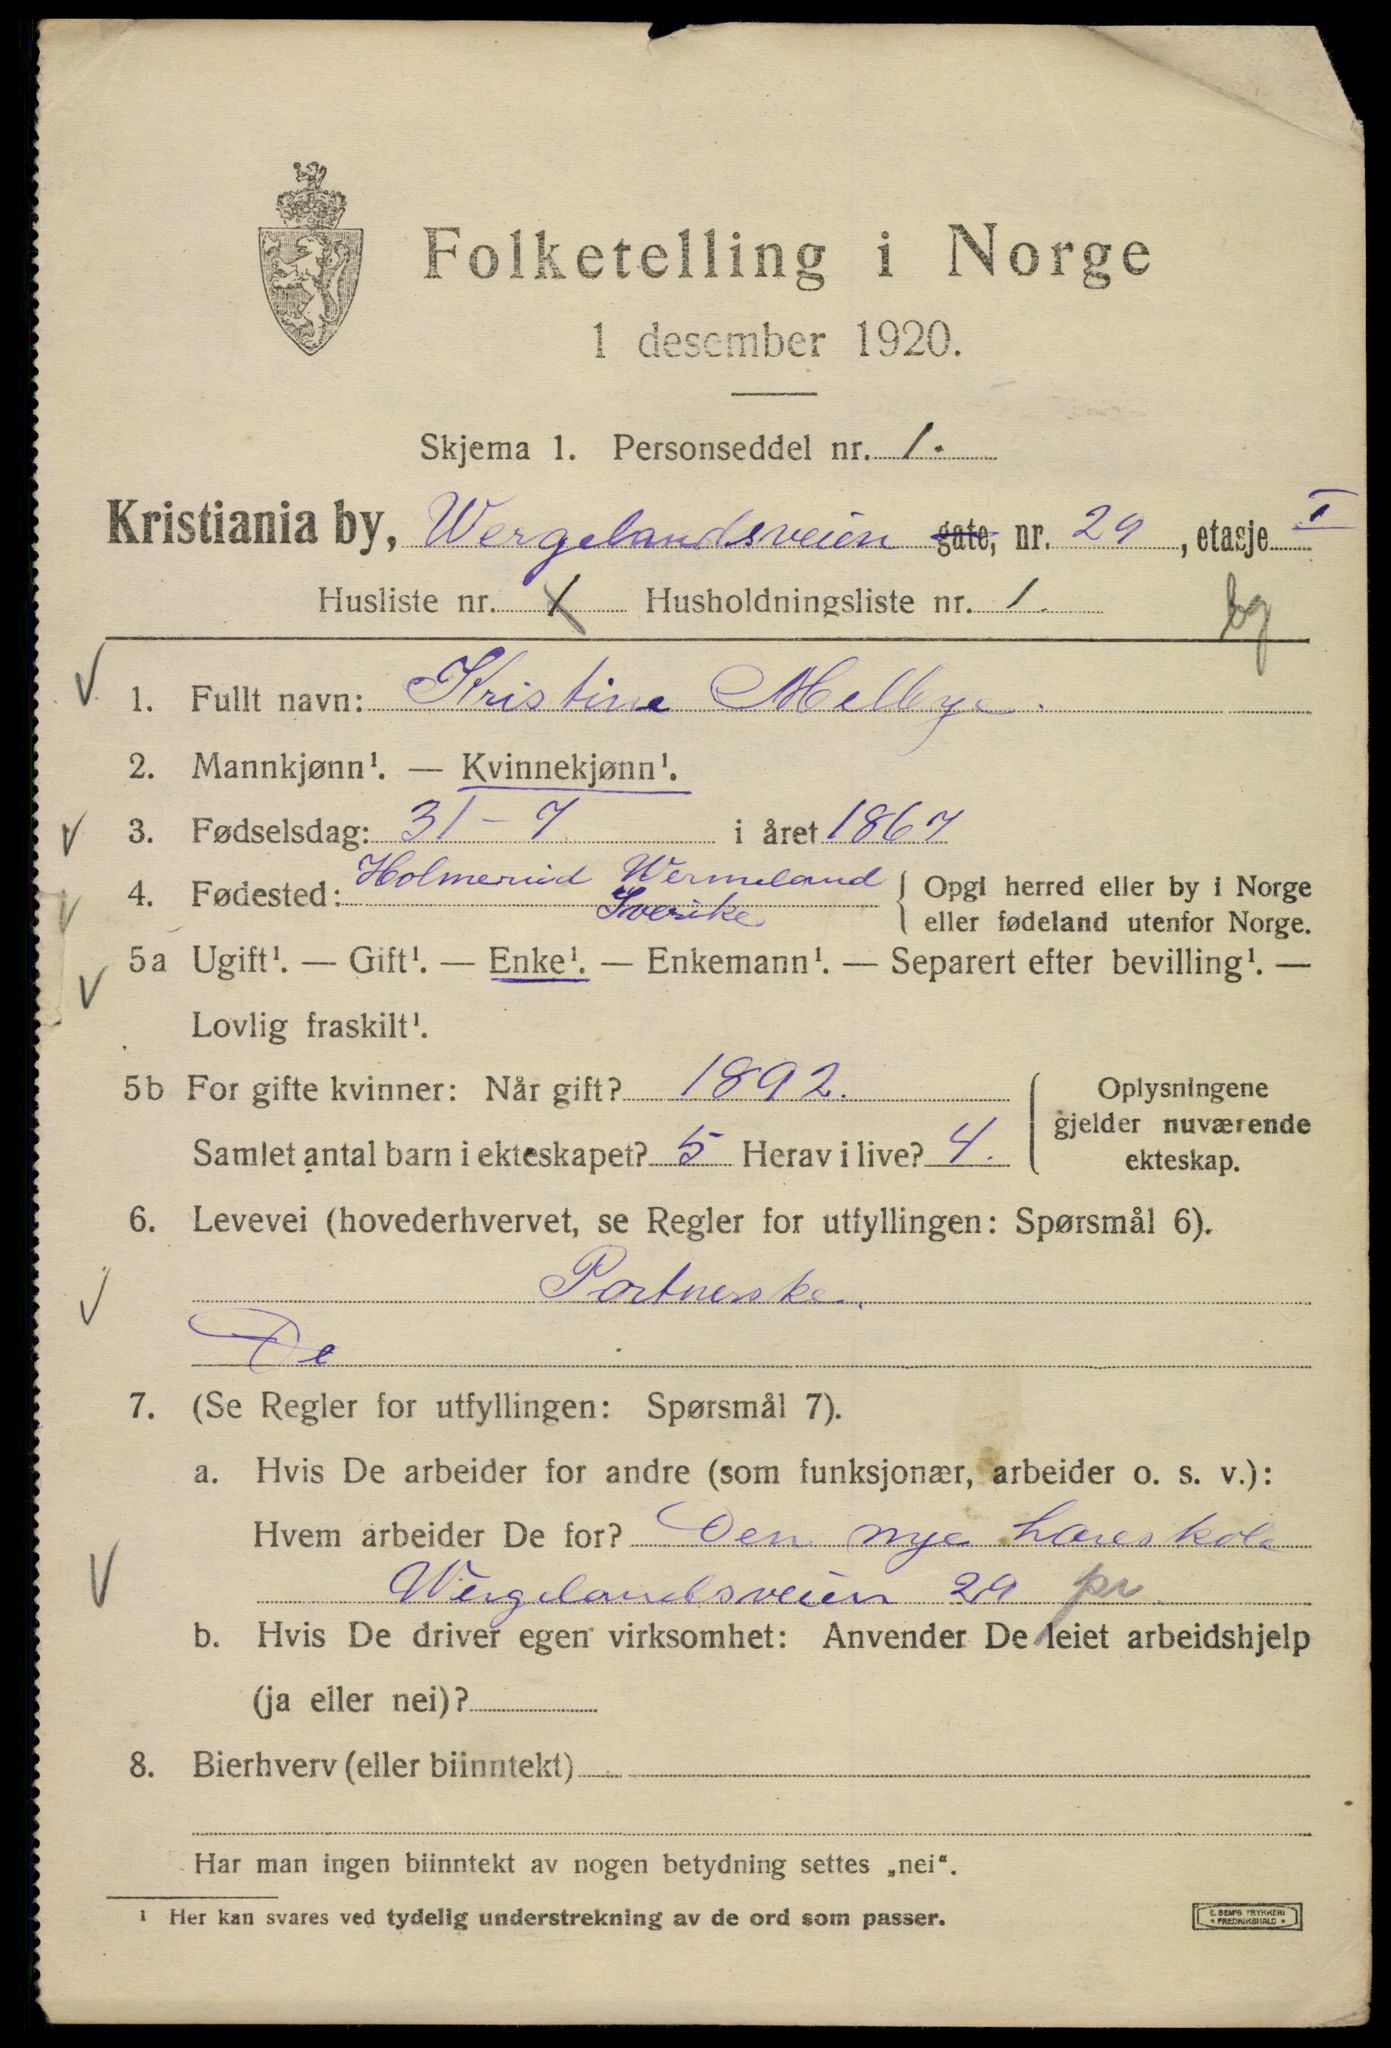 Folketelling i Norge
1 desember 1920.
Skjema 1. Personseddel nr. 1.
Kristiania by, Wergelandsveien gate, nr. 29, etasje I
Husliste nr. 1 Husholdningsliste nr. 1.
bg
1. Fullt navn: Kristine Melbye.
2. Mannkjønn¹. — Kvinnekjønn¹.
3. Fødselsdag: 31-7 i året 1867
4. Fødested: Holmerud Wermeland { Opgi herred eller by i Norge
Sverike eller fødeland utenfor Norge.
5a Ugift¹. — Gift¹. — Enke¹. — Enkemann¹. — Separert efter bevilling¹. —
Lovlig fraskilt¹.
5b For gifte kvinner: Når gift? 1892. { Oplysningene
gjelder nuværende
Samlet antal barn i ekteskapet? 5 Herav i live? 4. ekteskap.
6. Levevei (hovederhvervet, se Regler for utfyllingen: Spørsmål 6).
Portnerske.
De
7. (Se Regler for utfyllingen: Spørsmål 7).
a. Hvis De arbeider for andre (som funksjonær, arbeider o. s. v.):
Hvem arbeider De for? Den nye
Wergelandsveien 29 pr
b. Hvis De driver egen virksomhet: Anvender De leiet arbeidshjelp
(ja eller nei)?
8. Bierhverv (eller biinntekt)
Har man ingen biinntekt av nogen betydning settes „nei“.
¹ Her kan svares ved tydelig understrekning av de ord som passer.
E. SEM'S TRYKKERI
• FREDRIKSHALD •